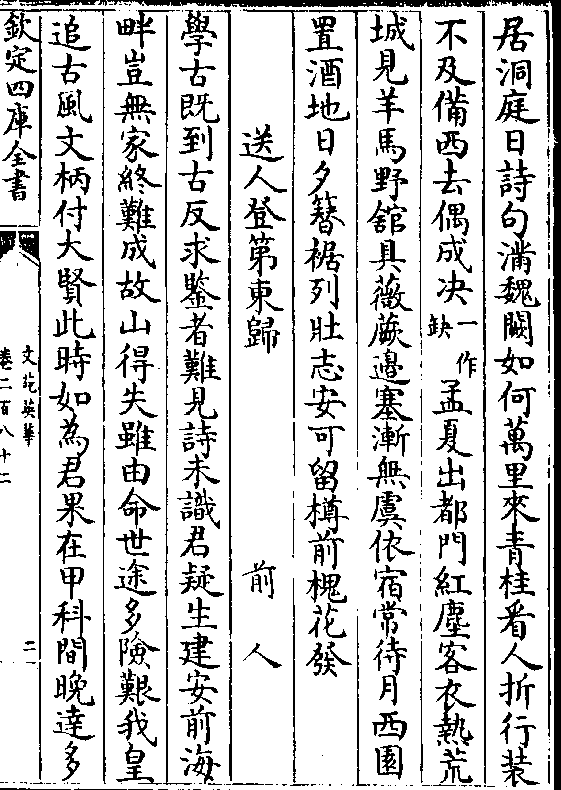 居洞庭日詩句滿魏闕如何萬里來青桂看人折行装
不及備西去偶成决一作缺孟夏出都門紅塵客衣熱荒
城見羊馬野舘具薇蕨邊塞漸無虞依宿常待月西園
置酒地日夕簪裾列壯志安可留樽前槐花發
送人登第東歸 前人
學古既到古反求鑒者難見詩未識君疑生建安前海
畔豈無家終難成故山得失雖由命世途多險艱我皇
追古風文柄付大賢此時如為君果在甲科間晚達多
欽定四庫全書
文苑英華
卷二百八十二
二